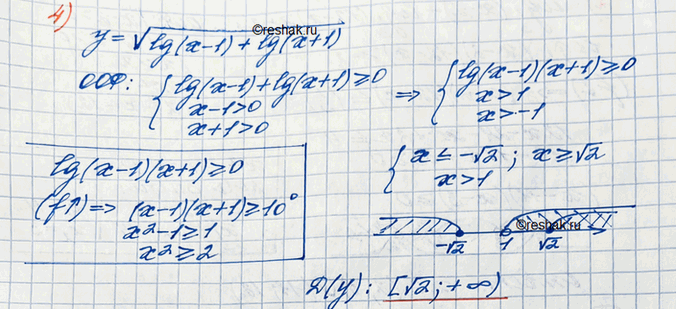 4)
©reshak.ru
y = √(lg(x-1) + lg(x+1))
ООФ: { lg(x-1) + lg(x+1) ≥ 0 ⇒ { lg(x-1)(x+1) ≥ 0
x-1 > 0 x > 1
x+1 > 0 x > -1
lg(x-1)(x+1) ≥ 0
(f↑) ⇒ (x-1)(x+1) ≥ 10⁰
x²-1 ≥ 1
x² ≥ 2
{ x ≤ -√2 ; x ≥ √2
x > 1
©reshak.ru
-√2 1 √2
D(y): [√2; +∞)